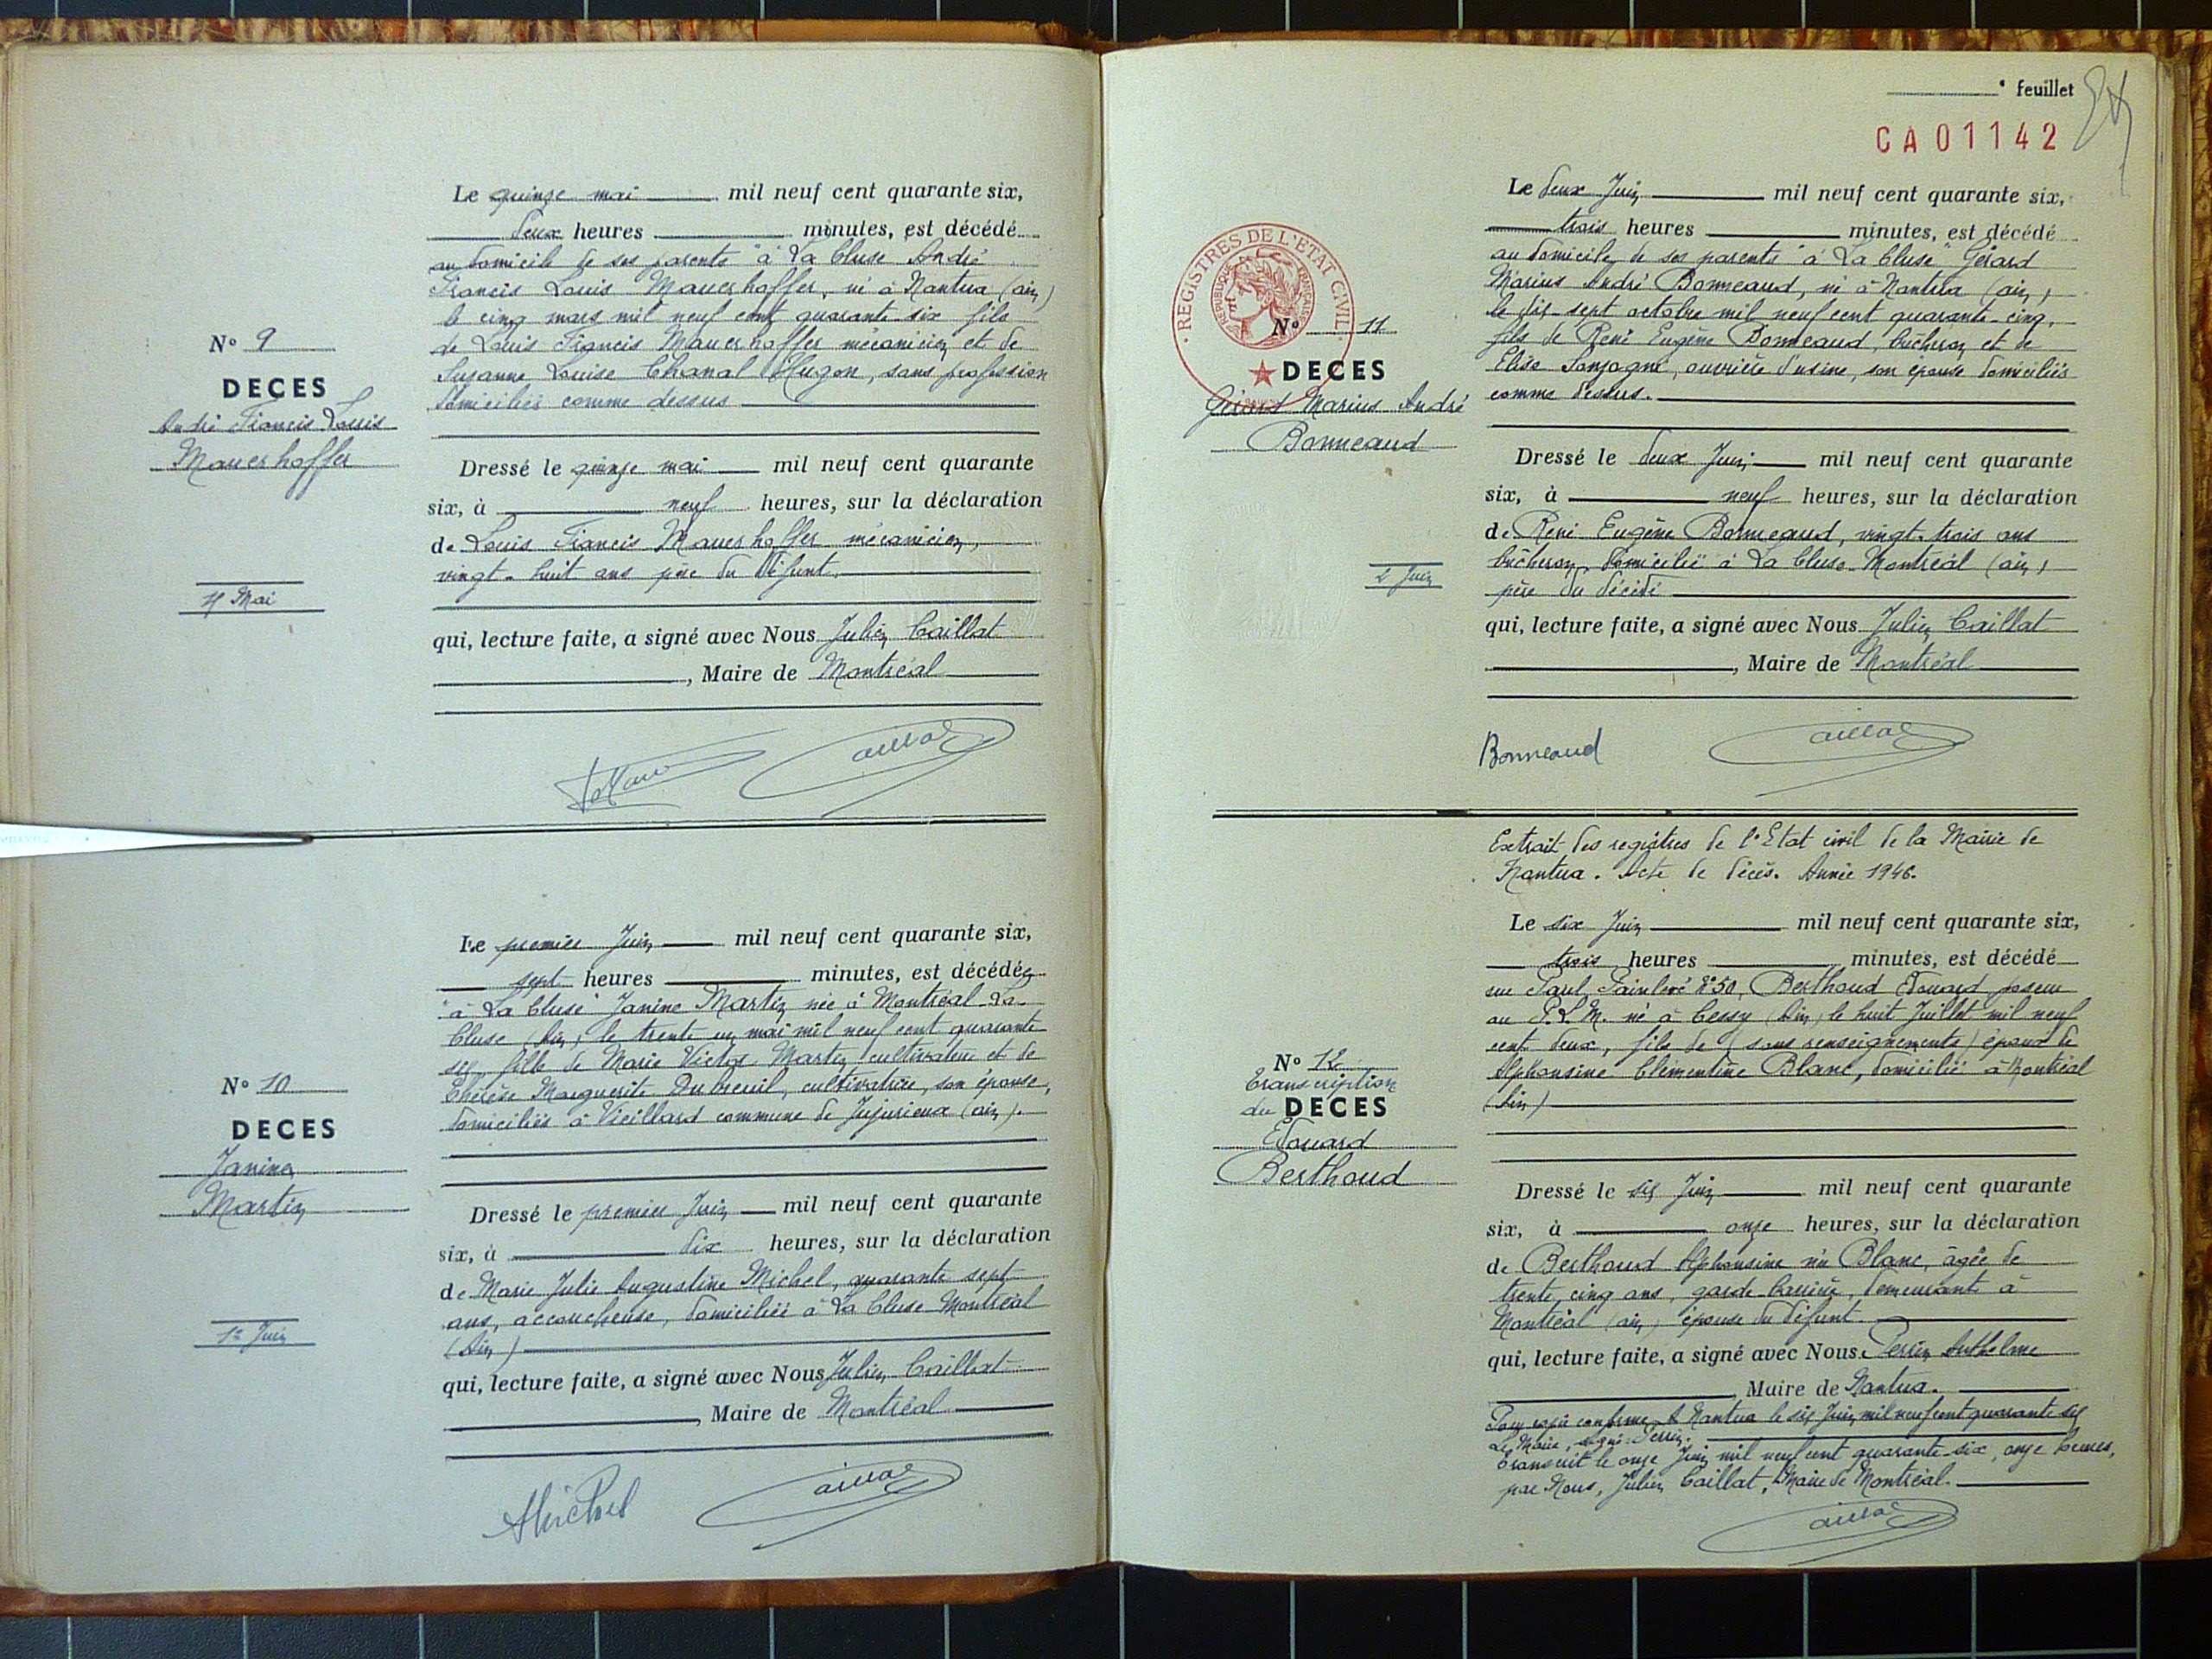 Le quinze mai mil neuf cent quarante six,
deux heures minutes, est décédé
au domicile de ses parents "à La Cluse André
Francis Louis Mauerhoffer, né à Nantua (ain)
le cinq mars mil neuf cent quarante six fils
de Louis Francis Mauerhoffer mécanicien et de
Suzanne Louise Chanal Hugon, sans profession
domiciliés comme dessus
N° 9
DECES
André Francis Louis
Mauerhoffer
Dressé le quinze mai mil neuf cent quarante
six, à neuf heures, sur la déclaration
de Louis Francis Mauerhoffer mécanicien,
vingt-huit ans père du défunt.
Mai
qui, lecture faite, a signé avec Nous Julien Caillat
, Maire de Montréal
Le premier Juin mil neuf cent quarante six,
sept heures minutes, est décédée
"à La Cluse" Janine Martin née à Montréal-La-
Cluse (Ain) le trente un mai mil neuf cent quarante
six, fille de Marie Victor Martin cultivateur et de
Thérèse Marguerite Dubreuil, cultivatrice, son épouse,
domiciliés à Vieillard commune de Jujurieux (ain).
N° 10
DECES
Janine
Martin
Dressé le premier Juin mil neuf cent quarante
six, à dix heures, sur la déclaration
de Marie Julie Augustine Michel, quarante sept
ans, accoucheuse, domiciliée à La Cluse Montréal
(Ain)
1er Juin
qui, lecture faite, a signé avec Nous Julien Caillat
, Maire de Montréal
Michel
° feuillet
CA01142
Le deux Juin mil neuf cent quarante six,
trois heures minutes, est décédé
au domicile de ses parents "à La Cluse" Gérard
Marius André Bonneaud, né à Nantua (ain)
le dix-sept octobre mil neuf cent quarante-cinq,
fils de René Eugène Bonneaud, bûcheron et de
Elise ouvrière d'usine, son épouse domiciliés
comme dessus.
REGISTRES DE L'ETAT CIVIL
REPUBLIQUE FRANÇAISE
N° 11
DECES
Gérard Marius André
Bonneaud
Dressé le deux Juin mil neuf cent quarante
six, à neuf heures, sur la déclaration
de René Eugène Bonneaud, vingt-trois ans
bûcheron, domicilié à La Cluse-Montréal (ain)
père du décédé
2 Juin
qui, lecture faite, a signé avec Nous Julien Caillat
, Maire de Montréal
Bonneaud
Extrait des registres de l'Etat civil de la Mairie de
Nantua. Acte de décès. Année 1946.
Le six Juin mil neuf cent quarante six,
trois heures minutes, est décédé
rue Paul Painlevé n°50, Berthoud Edouard poseur
au P.L.M. né à Cessy (Ain) le huit Juillet mil neuf
cent deux, fils de (sans renseignements) époux de
Alphonsine Clémentine Blanc, domicilié à Montréal
(Ain)
N° 12
Transcription
du DECES
Edouard
Berthoud
Dressé le six Juin mil neuf cent quarante
six, à onze heures, sur la déclaration
de Berthoud Alphonsine née Blanc, âgée de
trente cinq ans, garde-barrière, demeurant à
Montréal (ain) épouse du défunt.
qui, lecture faite, a signé avec Nous Perrin Anthelme
, Maire de Nantua.
Pour copie conforme A Nantua le six Juin mil neuf cent quarante six
Le Maire, signé: Perrin.
Transcrit le onze Juin mil neuf cent quarante-six, onze heures,
par Nous, Julien Caillat, Maire de Montréal.